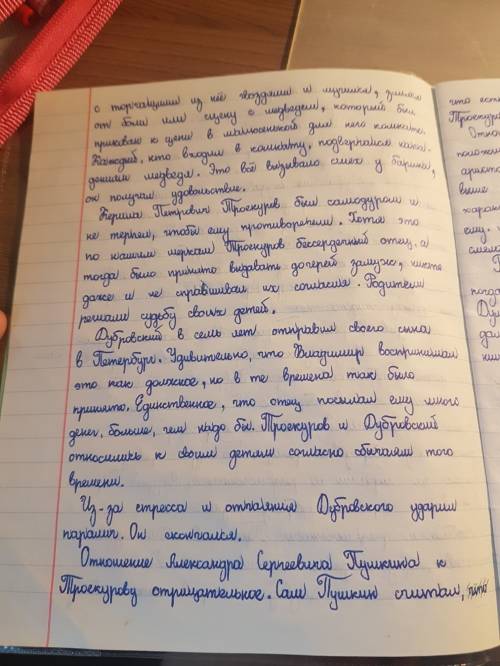 с торчащими из неё гвоздями и мушка, зимой
от боли или сцену с медведем, который был
прикован к цепи в маленькой для него комнате.
Каждый, кто входил в комнату, подвергался
медведя. Это всё вызывало смех у барина,
он получал удовольствие.
Кирила Петрович Троекуров был самодуром и
не терпел, чтобы ему противоречили. Хотя это
по нашим меркам Троекуров бессердечный отец, а
тогда было принято выдавать дочерей замуж, иногда
даже и не спрашивая их согласия. Родители
решали судьбу своих детей.
Дубровский в семь лет отправил своего сына
в Петербург. Удивительно, что Владимир воспринимал
это как должное, но в те времена так было
принято. Единственное, что отец посылал ему много
денег, больше, чем надо бы. Троекуров и Дубровский
относились к своим детям согласно обычаям того
времени.
Из-за стресса и отчаяния Дубровского ударил
паралич. Он скончался.
Отношение Александра Сергеевича Пушкина к
Троекурову отрицательное. Сам Пушкин считал, что
что есть
Троекур
Отно
полож
аристо
выше
харак
ему.
смел
погод
Ду
дал